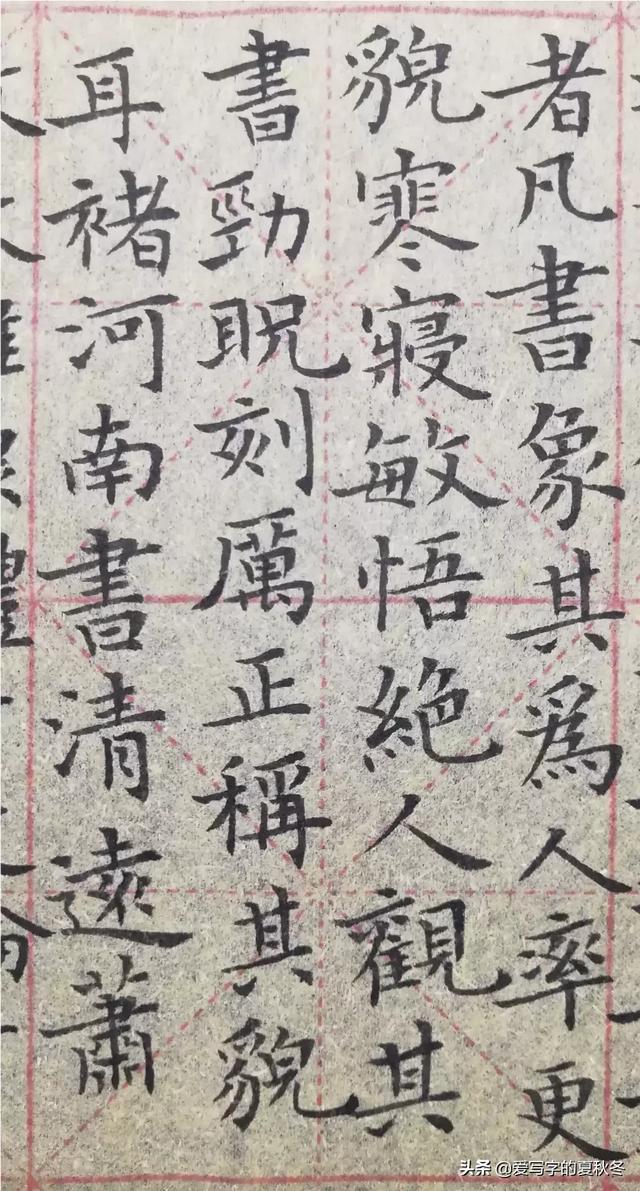 者凡書象其爲人率更
貌寒寢敏悟絕人觀其
書勁䀝刻厲正稱其貌
耳褚河南書清遠蕭
头条 @爱写字的夏秋冬